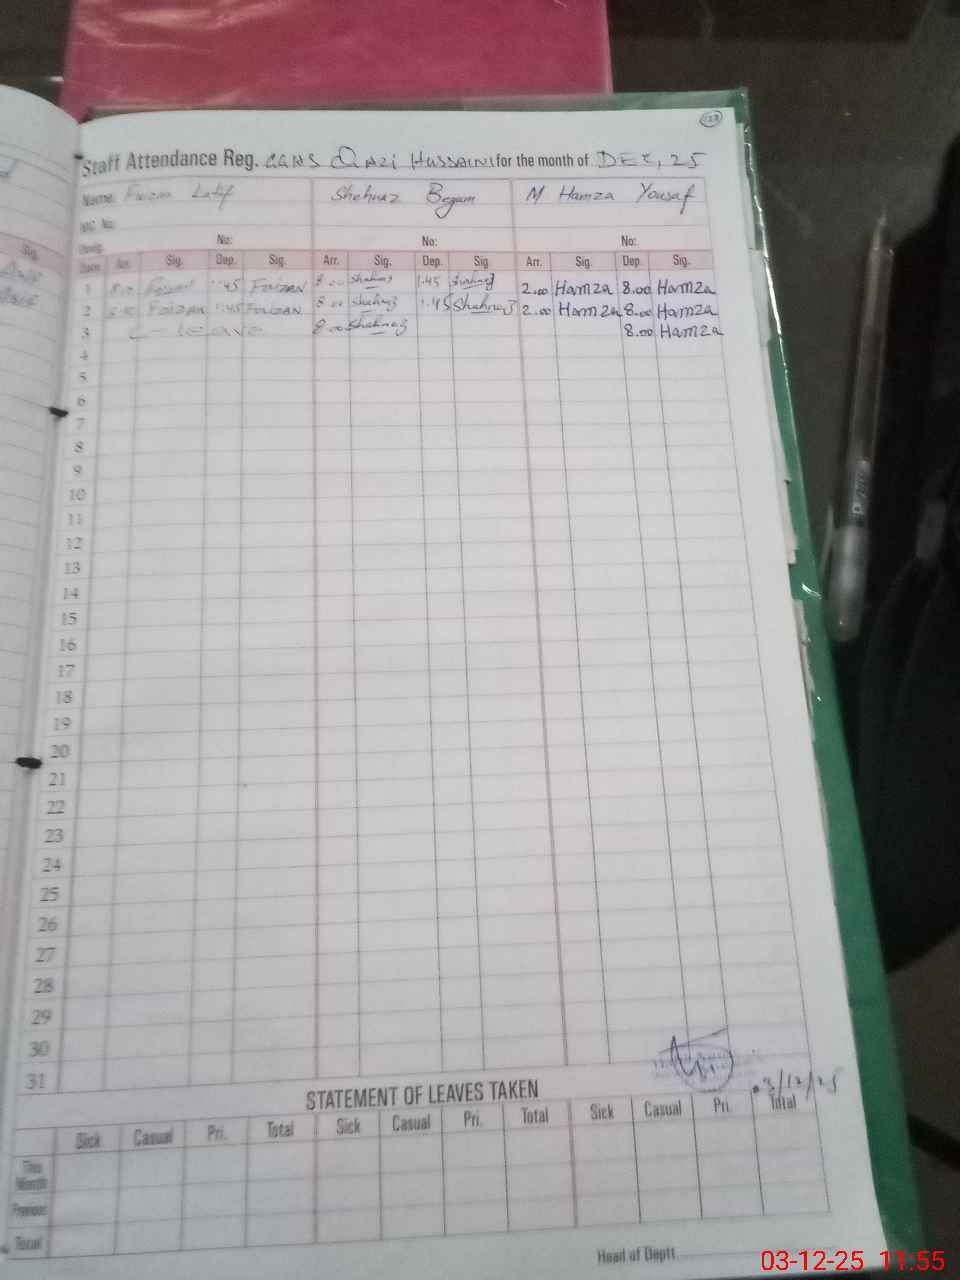 123
Staff Attendance Reg. GGHS Qazi Hussaini for the month of DEC, 25
Name. Faizan Latif Shehnaz Begum M Hamza Yousaf
NIC No:
Desig. No: No: No:
Date Arr. Sig. Dep. Sig. Arr. Sig. Dep. Sig. Arr. Sig. Dep. Sig.
1 1:45 FAIZAN 8:00 Shahnaz 1:45 Shahnaz 2.00 Hamza 8.00 Hamza
2 FAIZAN 1:45 FAIZAN 8:00 Shahnaz 1:45 Shahnaz 2.00 Hamza 8.00 Hamza
3 Leave 8:00 Shahnaz 8.00 Hamza
4
5
6
7
8
9
10
11
12
13
14
15
16
17
18
19
20
21
22
23
24
25
26
27
28
29
30
31
03/12/25
STATEMENT OF LEAVES TAKEN
Sick Casual Pri. Total Sick Casual Pri. Total Sick Casual Pri. Total
This Month
Previous
Total
Head of Deptt
03-12-25 11:55
Sig.